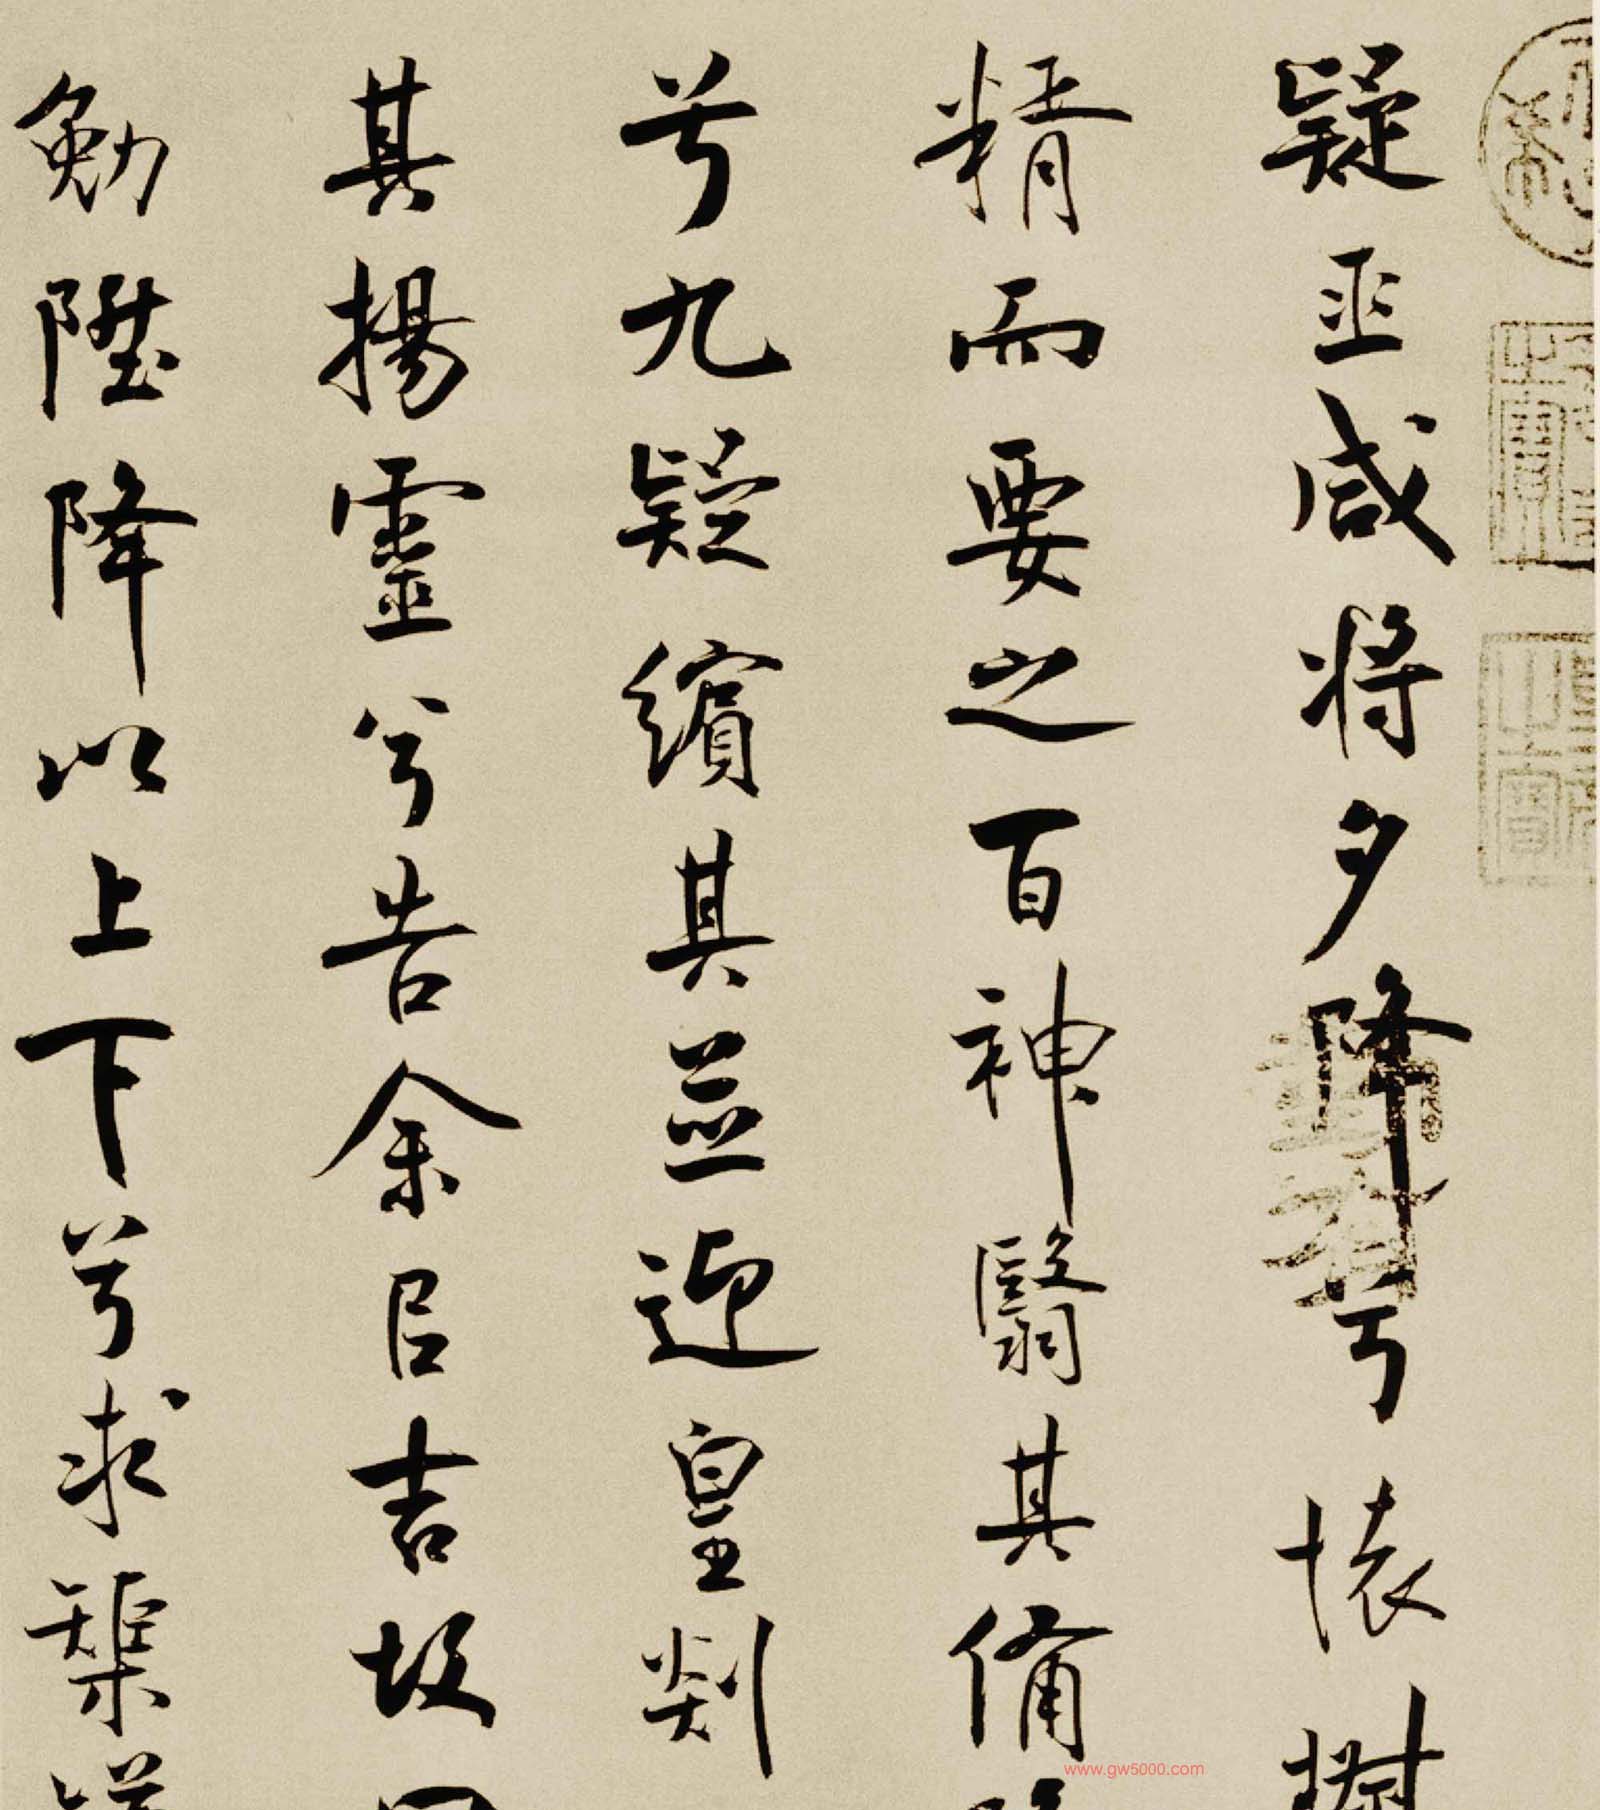 疑巫咸将夕降兮懐椒
精而要之百神翳其備降
兮九疑繽其並迎皇剡
其揚靈兮告余以吉故曰
勉陞降以上下兮求榘
www.gw5000.com